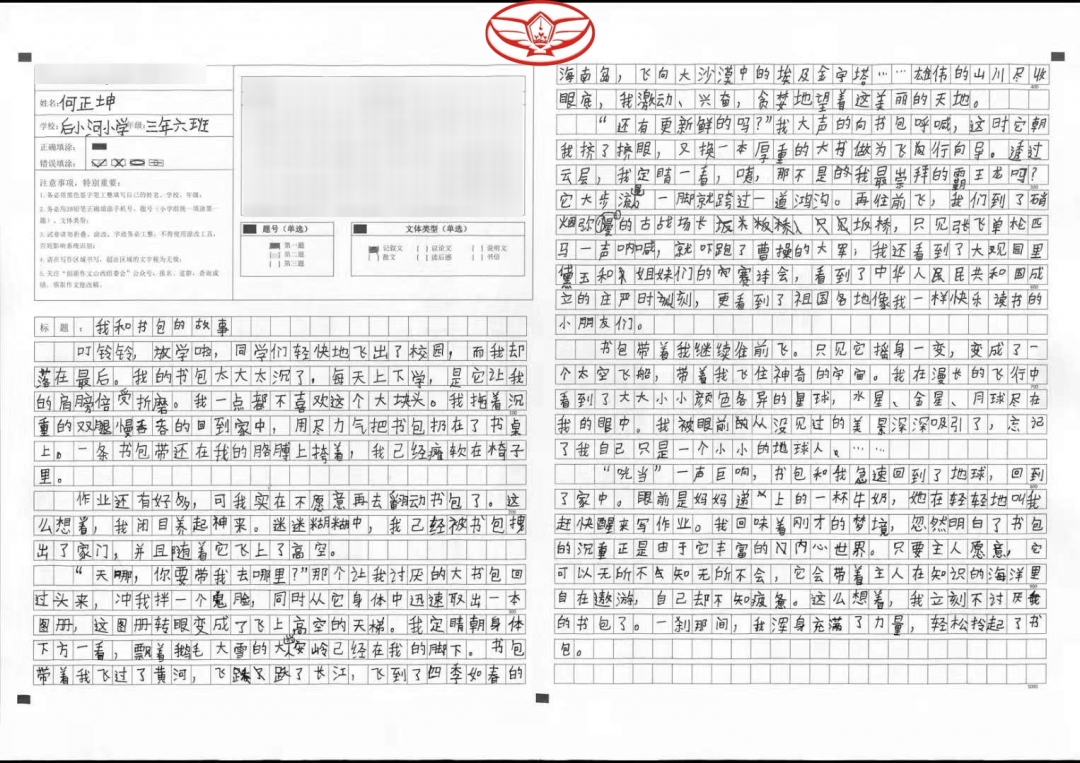 姓名:何正坤
学校:后小河小学 年级:三年六班
正确填涂:
错误填涂:
注意事项,特别重要:
题号(单选)
第一题
第二题
第三题
文体类型(单选)
记叙文 [ ] 议论文 [ ] 说明文
[ ] 散文 [ ] 读后感 [ ] 书信
标题:我和书包的故事
叮铃铃,放学啦,同学们轻快地飞出了校园,而我却
落在最后。我的书包太大太沉了,每天上下学,是它让我
的肩膀倍受折磨。我一点都不喜欢这个大块头。我拖着沉
重的双腿慢吞吞的回到家中,用尽力气把书包扔在了书桌
上。一条书包带还在我的胳膊上挎着,我已经瘫软在椅子
里。
作业还有好多,可我实在不愿意再去翻动书包了。这
么想着,我闭目养起神来。迷迷糊糊中,我已经被书包拽
出了家门,并且随着它飞上了高空。
“天哪,你要带我去哪里?”那个让我讨厌的大书包回
过头来,冲我拌一个鬼脸,同时从它身体中迅速取出一本
图册,这图册转眼变成了飞上高空的天梯。我定睛朝身体
下方一看,飘着鹅毛大雪的大兴安岭已经在我的脚下。书包
带着我飞过了黄河,飞跃了长江,飞到了四季如春的
海南岛,飞向大沙漠中的埃及金字塔……雄伟的山川尽收
眼底,我激动、兴奋,贪婪地望着这美丽的天地。
“还有更新鲜的吗?”我大声的向书包呼喊,这时它朝
我挤了挤眼,又换一本厚重的大书做为飞行向导。透过
云层,我定睛一看,嘿,那不是我最崇拜的霸王龙吗?
它大步流星一脚就跨过一道鸿沟。再往前飞,我们到了硝
烟弥漫的古战场长坂桥,只见坂桥,只见张飞单枪匹
马一声呐喊,就吓跑了曹操的大军;我还看到了大观园里
黛玉和姐妹们的赛诗会,看到了中华人民共和国成
立的庄严时刻,更看到了祖国各地像我一样快乐读书的
小朋友们。
书包带着我继续往前飞。只见它摇身一变,变成了一
个太空飞船,带着我飞往神奇的宇宙。我在漫长的飞行中
看到了大大小小颜色各异的星球,水星、金星、月球尽在
我的眼中。我被眼前从没见过的美景深深吸引了,忘记
了我自己只是一个小小的地球人。……
“咣当”一声巨响,书包和我急速回到了地球,回到
了家中。眼前是妈妈递上的一杯牛奶,她在轻轻地叫我
赶快醒来写作业。我回味着刚才的梦境,忽然明白了书包
的沉重正是由于它丰富的内心世界。只要主人愿意,它
可以无所不知无所不会,它会带着主人在知识的海洋里
自在遨游,自己却不知疲惫。这么想着,我立刻不讨厌我
的书包了。一刹那间,我浑身充满了力量,轻松拎起了书
包。